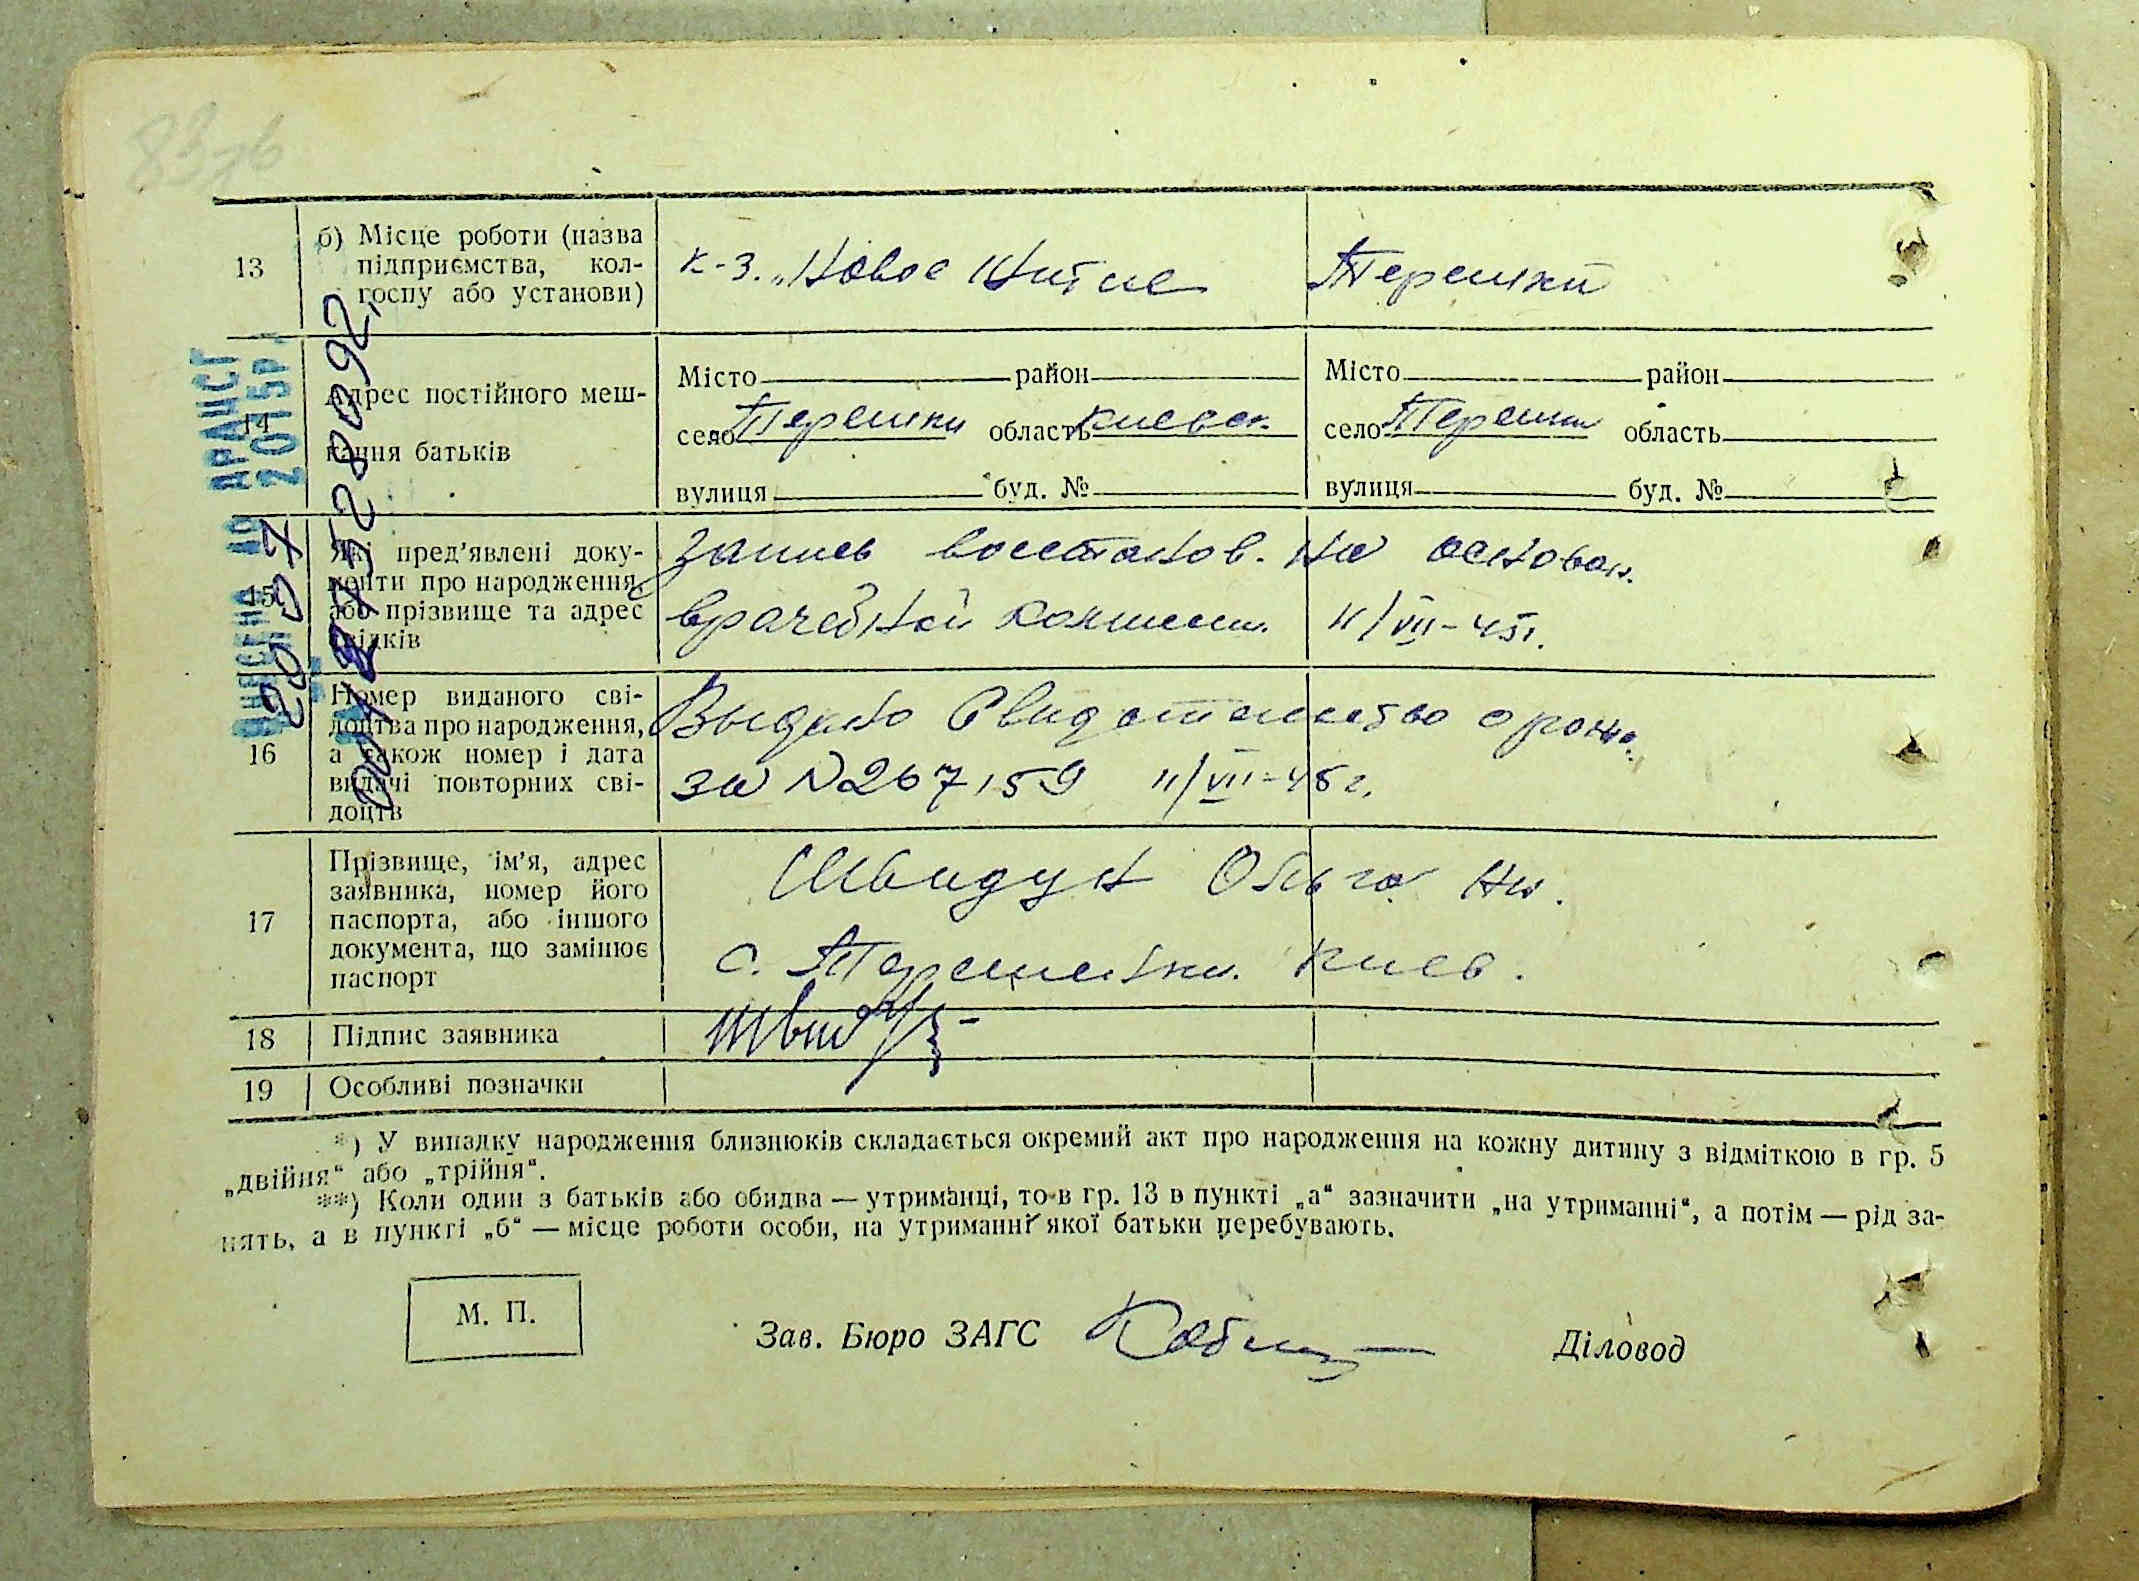 83зв
13
б) Місце роботи (назва
підприємства, кол-
госпу або установи)
к-з. „Новое Житие
Терешки
14
Адрес постійного меш-
кання батьків
Місто район
село Терешки область Киевск.
вулиця буд. №
Місто район
село Терешки область
вулиця буд. №
15
Які пред’явлені доку-
менти про народження
або прізвище та адрес
свідків
Запись восстанов. на основан.
врачебной комисии. 11/VII-45г.
16
Номер виданого сві-
доцтва про народження,
а також номер і дата
видачі повторних сві-
доцтв
Выдано Свидетельство о рожд.
за №267159 11/VII-45г.
17
Прізвище, ім’я, адрес
заявника, номер його
паспорта, або іншого
документа, що замінює
паспорт
Швидун Ольга Ив.
с. Терешки. Киев.
18
Підпис заявника
19
Особливі позначки
*) У випадку народження близнюків складається окремий акт про народження на кожну дитину з відміткою в гр. 5
„двійня“ або „трійня“.
**) Коли один з батьків або обидва — утриманці, то в гр. 13 в пункті „а“ зазначити „на утриманні“, а потім — рід за-
нять, а в пункті „б“ — місце роботи особи, на утриманні якої батьки перебувають.
М. П.
Зав. Бюро ЗАГС
Діловод
ВНЕСЕНА ДО ДРАЦСГ
20 07 2015р.